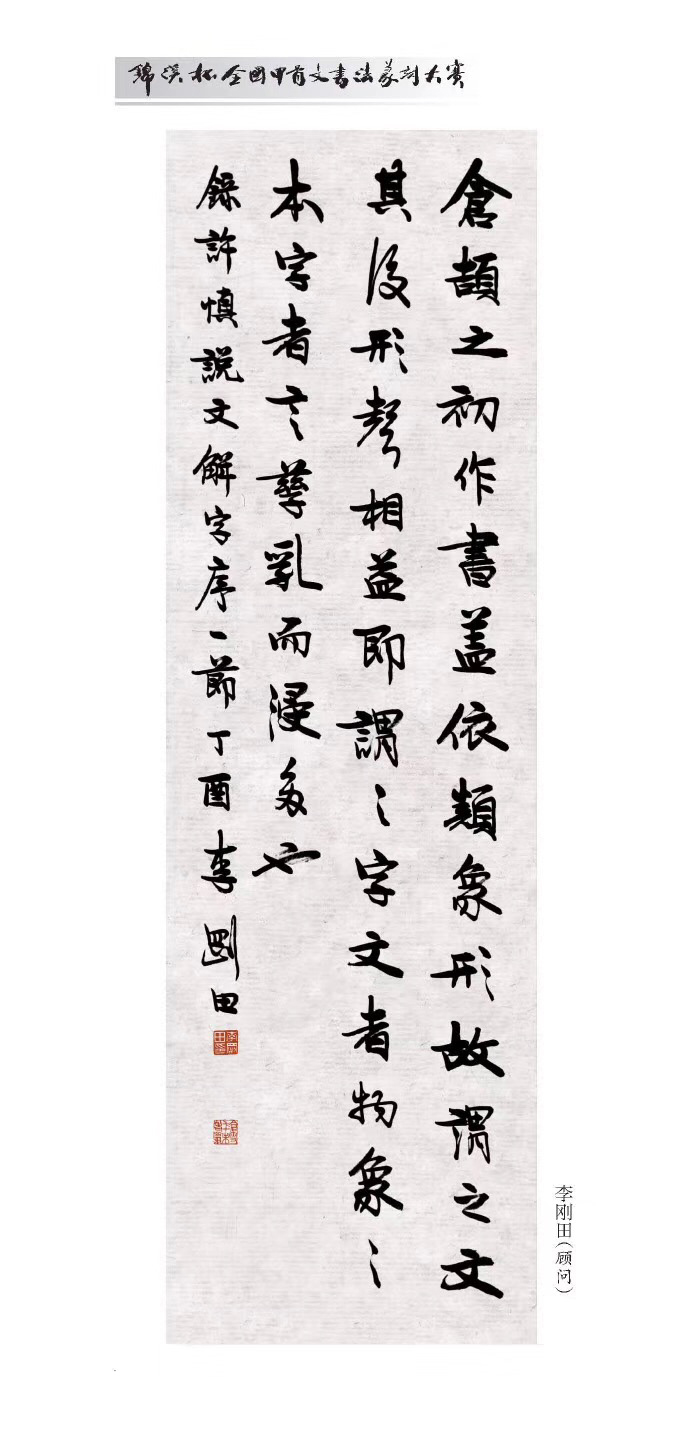 錦溪杯全國甲骨文書法篆刻大賽
倉頡之初作書盖依類象形故謂之文
其後形聲相益即謂之字文者物象之
本字者言孳乳而浸多也
錄許慎說文解字序一節丁酉李剛田
李刚田（顾问）